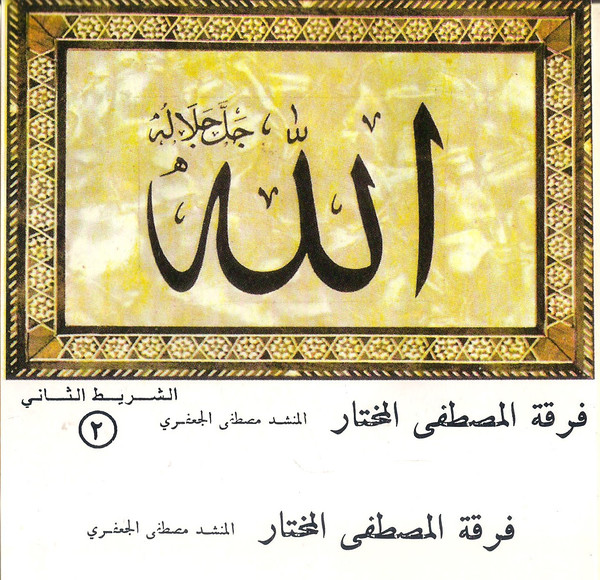 الله
جَلَّ جَلَالُهُ
فرقة المصطفى المختار المنشد مصطفى الجعفري الشريط الثاني
٢
فرقة المصطفى المختار المنشد مصطفى الجعفري